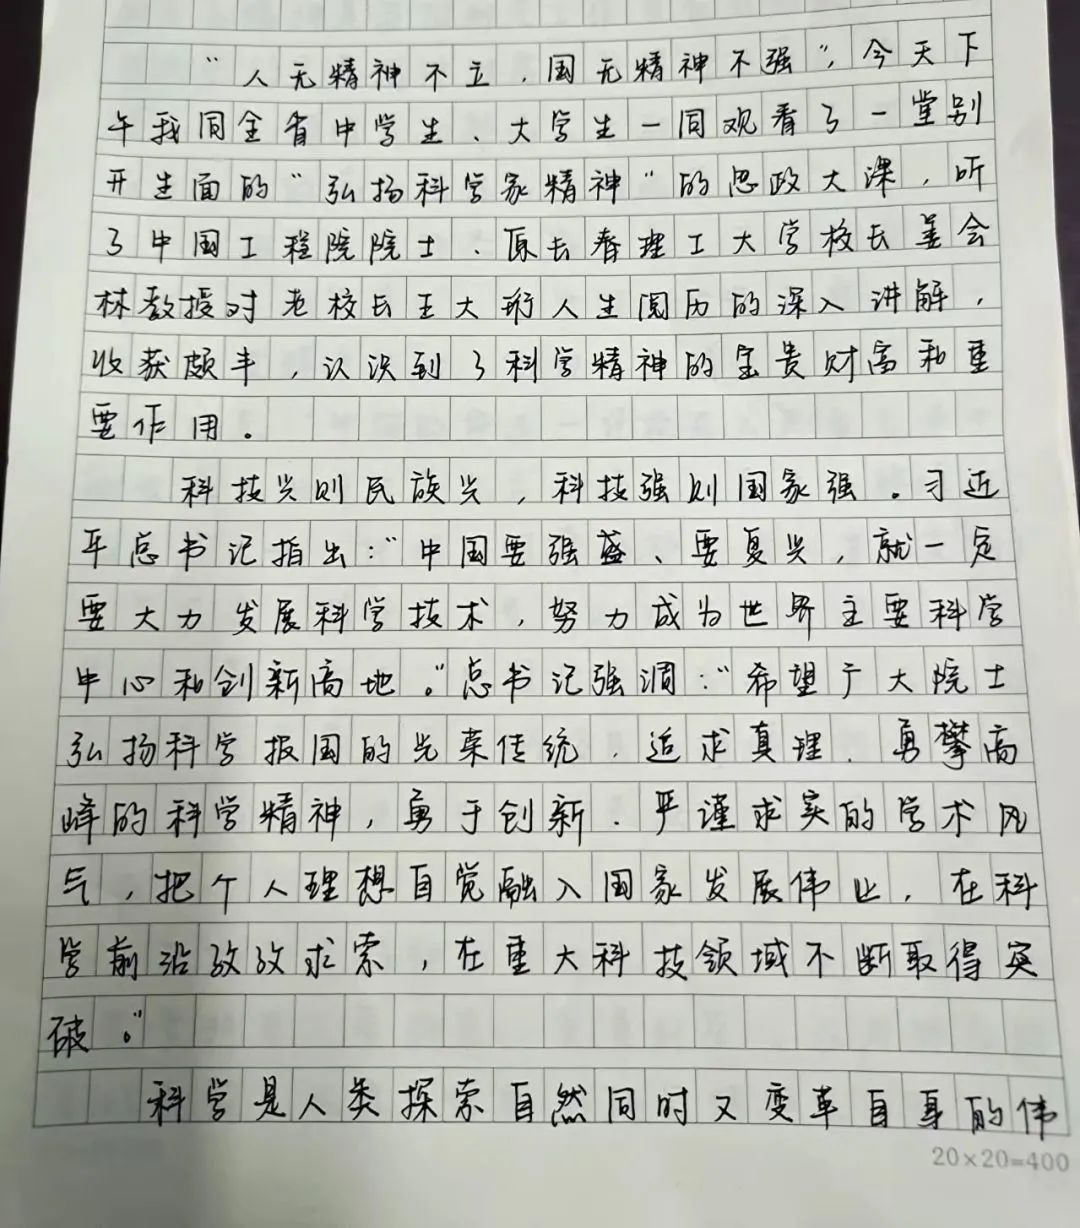 “人无精神不立，国无精神不强”，今天下
午我同全省中学生、大学生一同观看了一堂别
开生面的“弘扬科学家精神”的思政大课，听
了中国工程院院士、原长春理工大学校长姜会
林教授对老校长王大珩人生阅历的深入讲解，
收获颇丰，认识到了科学精神的宝贵财富和重
要作用。
科技兴则民族兴，科技强则国家强。习近
平总书记指出：“中国要强盛、要复兴，就一定
要大力发展科学技术，努力成为世界主要科学
中心和创新高地。”总书记强调：“希望广大院士
弘扬科学报国的光荣传统，追求真理、勇攀高
峰的科学精神，勇于创新、严谨求实的学术风
气，把个人理想自觉融入国家发展伟业，在科
学前沿孜孜求索，在重大科技领域不断取得突
破。”
科学是人类探索自然同时又变革自身的伟
20×20=400